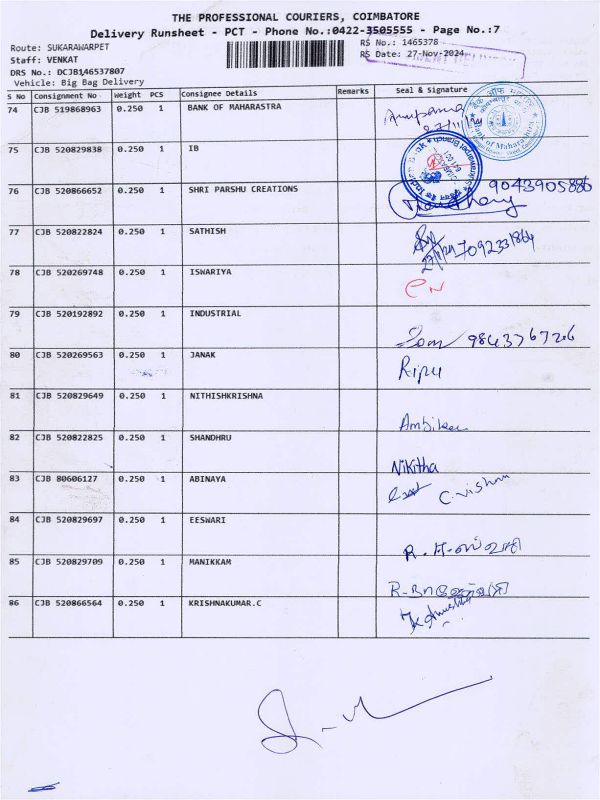 THE PROFESSIONAL COURIERS, COIMBATORE
Delivery Runsheet - PCT - Phone No.:0422-3505555 - Page No.:7
Route: SUKARAWARPET
RS No.: 1465378
Staff: VENKAT
RS Date: 27-Nov-2024
DRS No.: DCJB146537807
Vehicle: Big Bag Delivery
S No Consignment No Weight PCS Consignee Details Remarks Seal & Signature
74 CJB 519868963 0.250 1 BANK OF MAHARASTRA
75 CJB 520829838 0.250 1 IB
76 CJB 520866652 0.250 1 SHRI PARSHU CREATIONS 9043905886
77 CJB 520822824 0.250 1 SATHISH
78 CJB 520269748 0.250 1 ISWARIYA
79 CJB 520192892 0.250 1 INDUSTRIAL
80 CJB 520269563 0.250 1 JANAK Ripu
81 CJB 520829649 0.250 1 NITHISHKRISHNA Ambika
82 CJB 520822825 0.250 1 SHANDHRU Nikitha
83 CJB 80606127 0.250 1 ABINAYA C. Vishnu
84 CJB 520829697 0.250 1 EESWARI
85 CJB 520829709 0.250 1 MANIKKAM
86 CJB 520866564 0.250 1 KRISHNAKUMAR.C